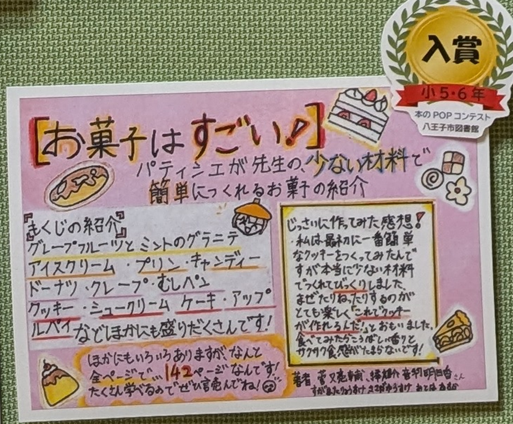 入賞
小5・6年
本のPOPコンテスト
八王子市図書館
[お菓子はすごい!]
パティシエが先生の、少ない材料で
簡単につくれるお菓子の紹介
『もくじの紹介』
グレープフルーツとミントのグラニテ
アイスクリーム・プリン・キャンディー
ドーナツ・クレープ・むしパン
クッキー・シュークリーム ケーキ・アップ
ルパイなどほかにも盛りだくさんです!
ほかにもいろいろありますが、なんと
全ページで…142ページなんです!
たくさん学べるのでぜひ読んでね!
じっさいに作ってみた感想!
・私は最初に一番簡単
なクッキーをつくってみたんで
すが本当に少ない材料
でつくれてびっくりしました。
まぜたりねったりするのが
とても楽しく「これでクッキー
が作れるんだ」とおもいました。
食べてみたらこうばしい香りと
サクサク食感がたまらないです!
著者
さん